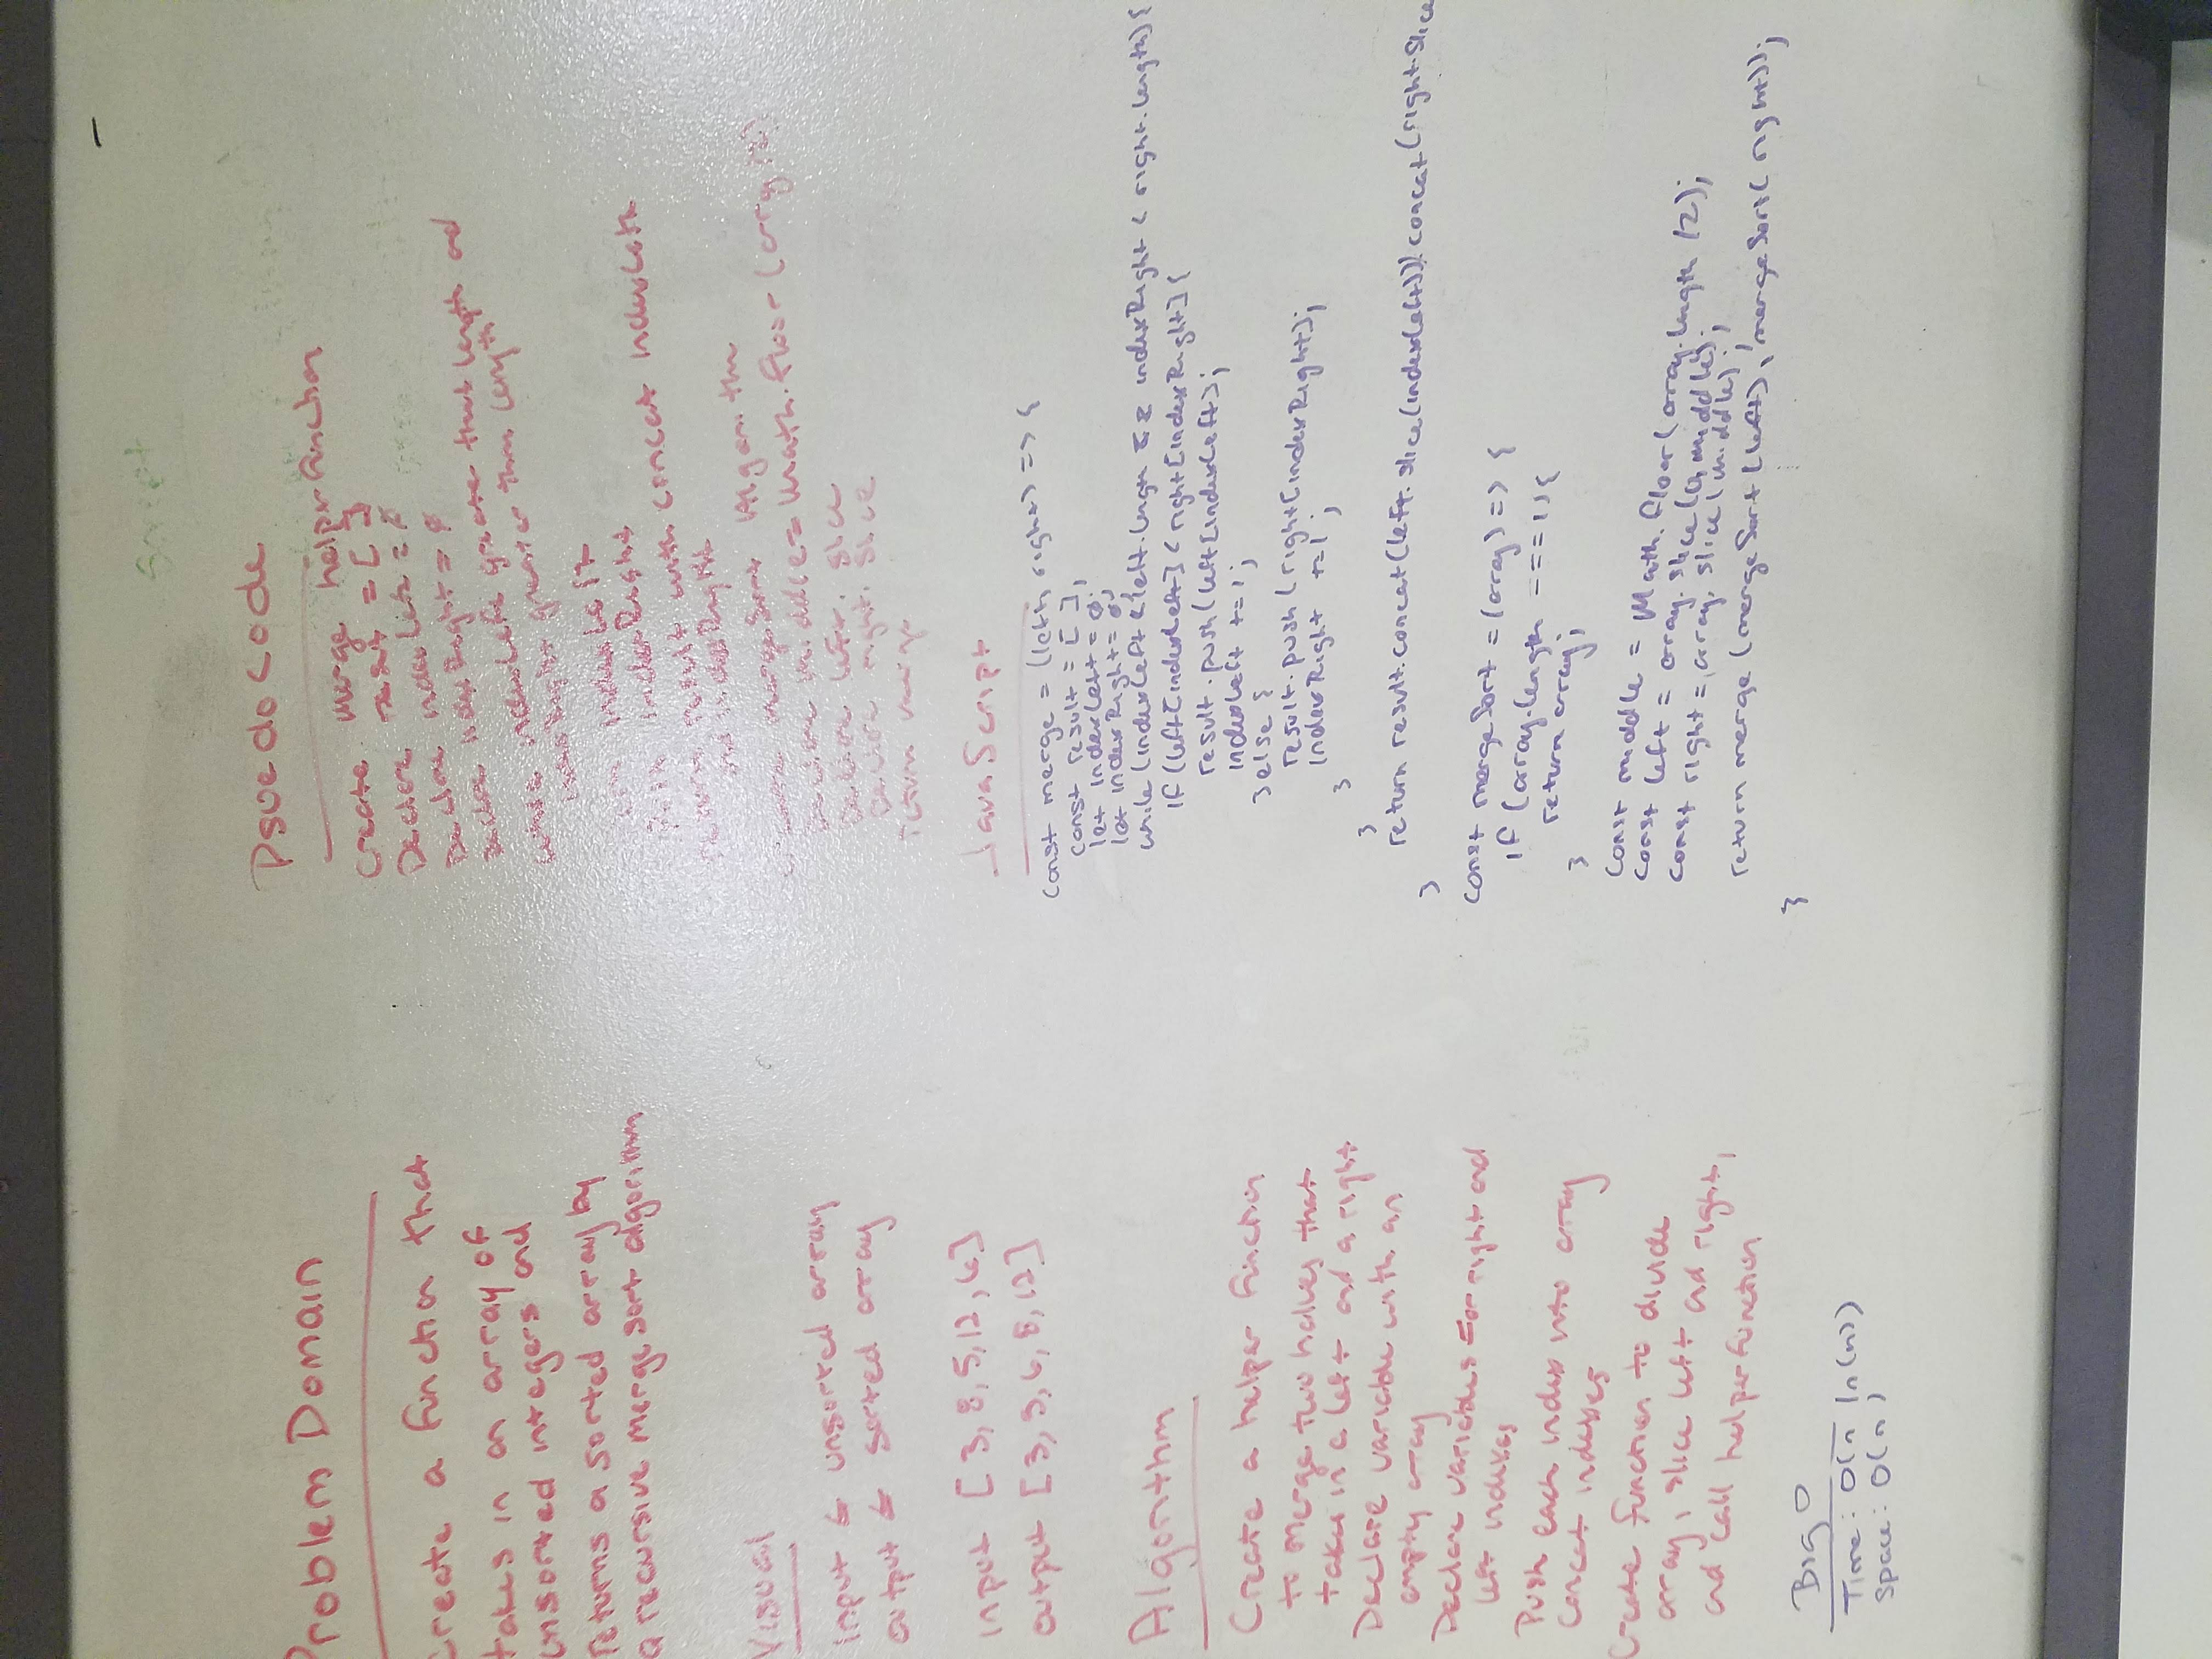 Script
Problem Domain
Create a function that
takes in an array of
unsorted integers and
returns a sorted array by
a recursive merge sort algorithm
Visual
input ← unsorted array
output ← sorted array
input [3, 8, 5, 12, 6]
output [3, 5, 6, 8, 12]
Algorithm
Create a helper function
to merge two halves that
takes in a left and a right
Declare variable with an
empty array
Declare variables for right and
left indexes
Push each index into array
Concat indexes
Create function to divide
array, slice left and right,
and call helper function
Big O
Time: O(n ln(n))
Space: O(n)
Psuedo Code
Create merge helper function
Declare result = [ ]
Declare indexLeft = 0
Declare indexRight = 0
while indexLeft greater that length and
indexRight greater than length
indexLeft
Push indexRight
return result with concat indexLeft
and indexRight
Create mergeSort Algorithm
Declare middle = Math.floor(array /2)
Declare left. slice
Declare right. slice
return merge
JavaScript
const merge = (left, right) => {
const result = [ ];
let indexLeft = 0;
let indexRight = 0;
while (indexLeft < left.lengh && indexRight < right.length) {
if (left[indexLeft] < right[indexRight] {
result.push(left[indexLeft];
indexLeft += 1;
} else {
result.push(right[indexRight];
indexRight += 1;
}
}
return result.concat(left.slice(indexLeft)).concat(right.slice
}
const mergeSort = (array) => {
if (array.length === 1) {
return array;
}
const middle = Math.floor(array.length /2);
const left = array.slice(0, middle);
const right = array.slice(middle);
return merge (mergeSort(left), mergeSort(right));
}